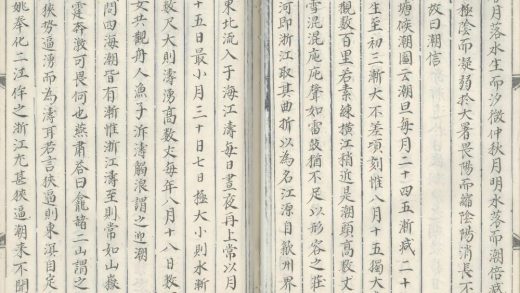 月落水生而汐微仲秋月明水落而潮倍減
極陰而凝弱於大署畏陽而縮陰陽消長不
故曰潮信
塘候潮圖云潮旦每月二十四五漸減二十
生至初三漸大不差頃刻惟八月十五獨大
觀數百里若素練橫江稍近是潮頭高數丈
雪混混庉庉聲如雷鼓猶不足以形容之莊
河即浙江取其曲折以為名江源自歙州界
東北流入于海江濤每日晝夜再上常以月
十五日最小月三十日七極大小則水漸
數尺大則濤湧高數丈每年八月十八日數
女共觀舟人漁子泝濤觸浪謂之迎潮
問四海潮皆有漸惟浙江濤至則常如山嶽
霆奔激可畏何也燕肅答曰龕赭二山謂之
狹勢逼湧而為濤耳若言狹逼則東溟自定
姚奉化二江侔之浙江尤甚狹逼潮來不聞